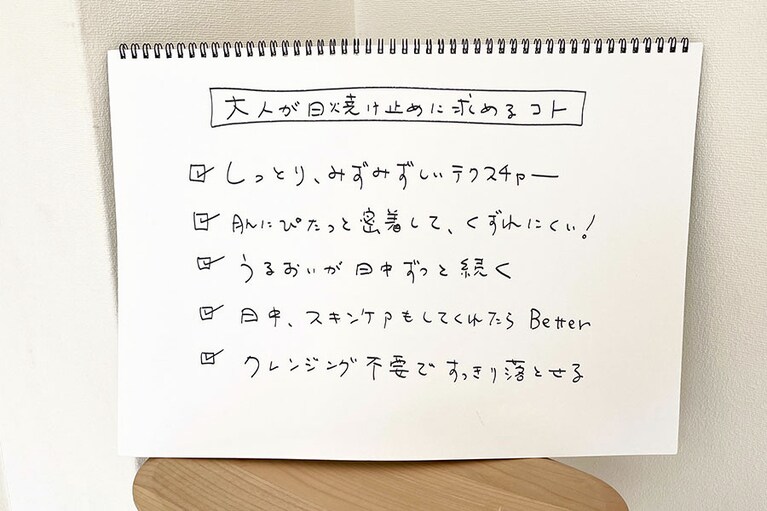 大人が日焼け止めに求めるコト
しっとり、みずみずしいテクスチャー
肌にぴたっと密着して、くずれにくい!
うるおいが日中ずっと続く
日中、スキンケアもしてくれたら Better
クレンジング不要ですっきり落とせる